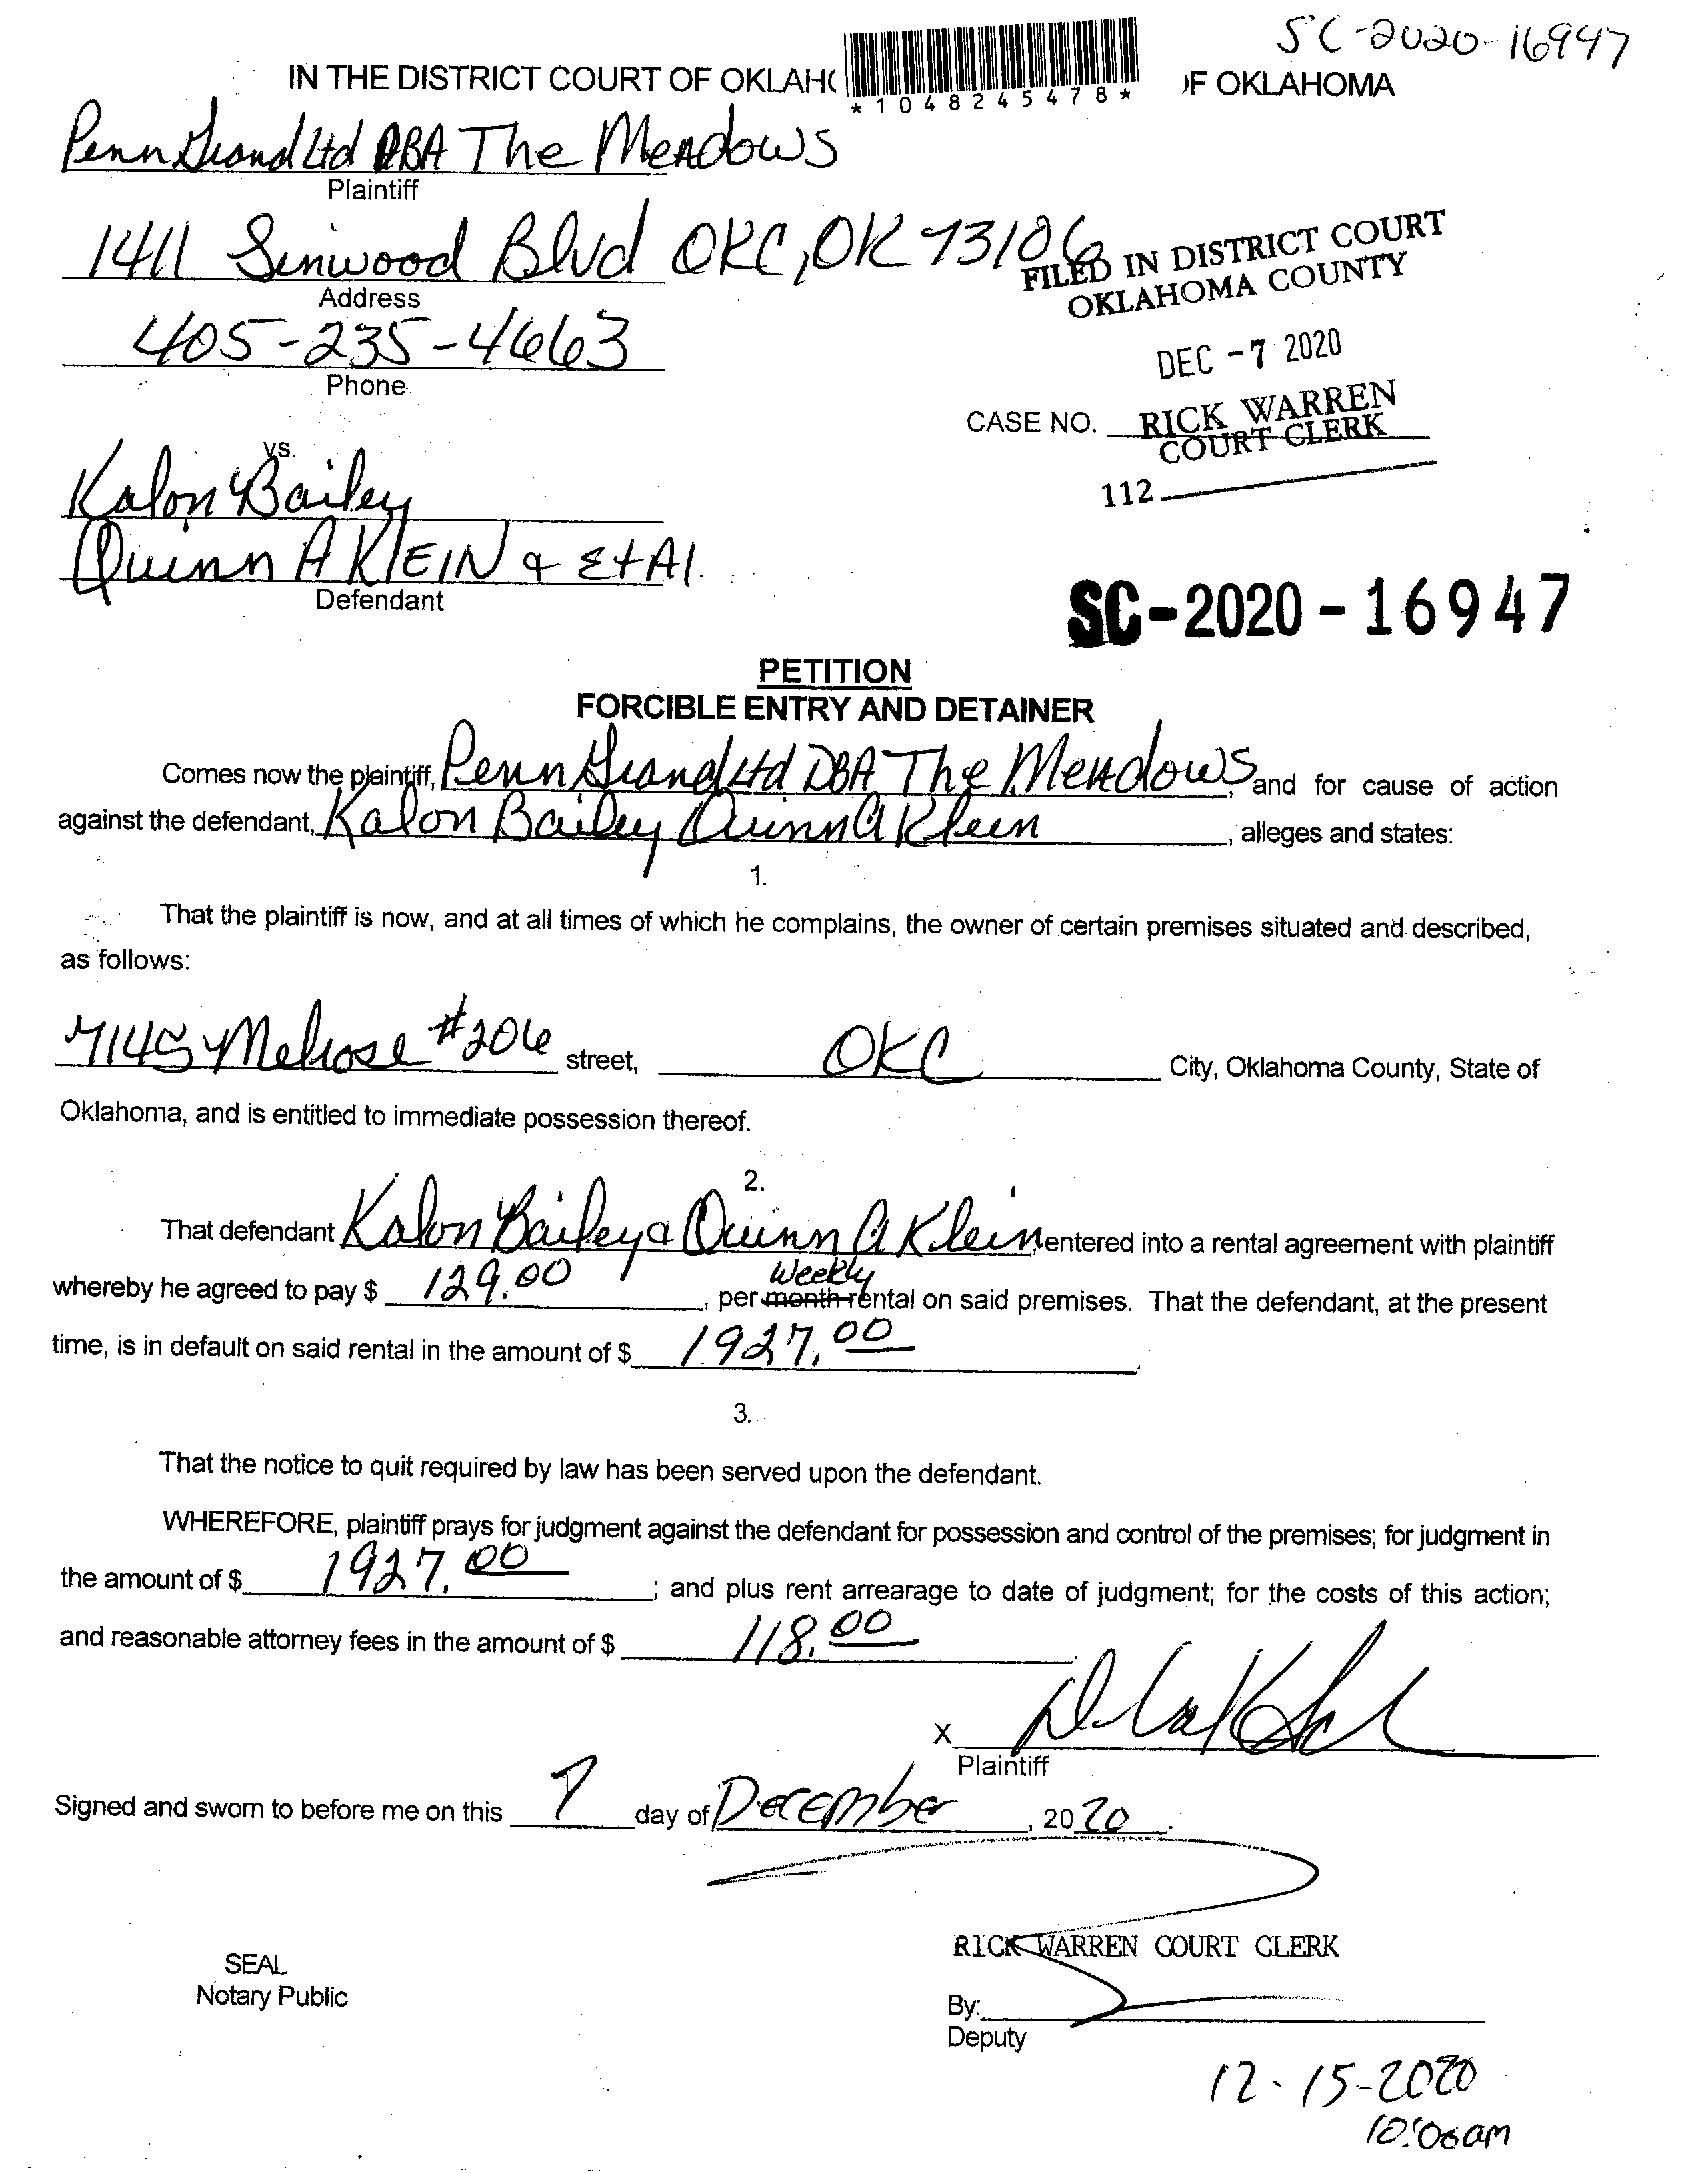 SC-2020-16947
IN THE DISTRICT COURT OF OKLAH( )F OKLAHOMA
*1048245478*
Penn Grand Ltd DBA The Meadows
Plaintiff
1411 Linwood Blvd OKC, OK 73106
Address
FILED IN DISTRICT COURT
OKLAHOMA COUNTY
405-235-4663
Phone
DEC -7 2020
CASE NO. RICK WARREN
COURT CLERK
112
vs.
Kalon Bailey
Quinn A KlEIN & EtAl.
Defendant
SC-2020-16947
PETITION
FORCIBLE ENTRY AND DETAINER
Comes now the plaintiff, Penn Grand Ltd DBA The Meadows, and for cause of action
against the defendant, Kalon Bailey Quinn A Klein, alleges and states:
1.
That the plaintiff is now, and at all times of which he complains, the owner of certain premises situated and described,
as follows:
7145 Melrose #206 street, OKC City, Oklahoma County, State of
Oklahoma, and is entitled to immediate possession thereof.
2.
That defendant Kalon Bailey & Quinn A Klein, entered into a rental agreement with plaintiff
Weekly
whereby he agreed to pay $ 129.00, per month rental on said premises. That the defendant, at the present
time, is in default on said rental in the amount of $ 1927.00.
3.
That the notice to quit required by law has been served upon the defendant.
WHEREFORE, plaintiff prays for judgment against the defendant for possession and control of the premises; for judgment in
the amount of $ 1927.00; and plus rent arrearage to date of judgment; for the costs of this action;
and reasonable attorney fees in the amount of $ 118.00.
X
Plaintiff
Signed and sworn to before me on this 7 day of December, 2020.
RICK WARREN COURT CLERK
SEAL
Notary Public
By:
Deputy
12-15-2020
10:00am